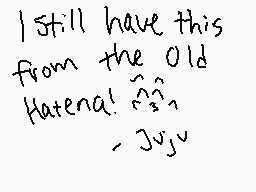 I still have this
from the Old
Hatena! ^^
- Juju